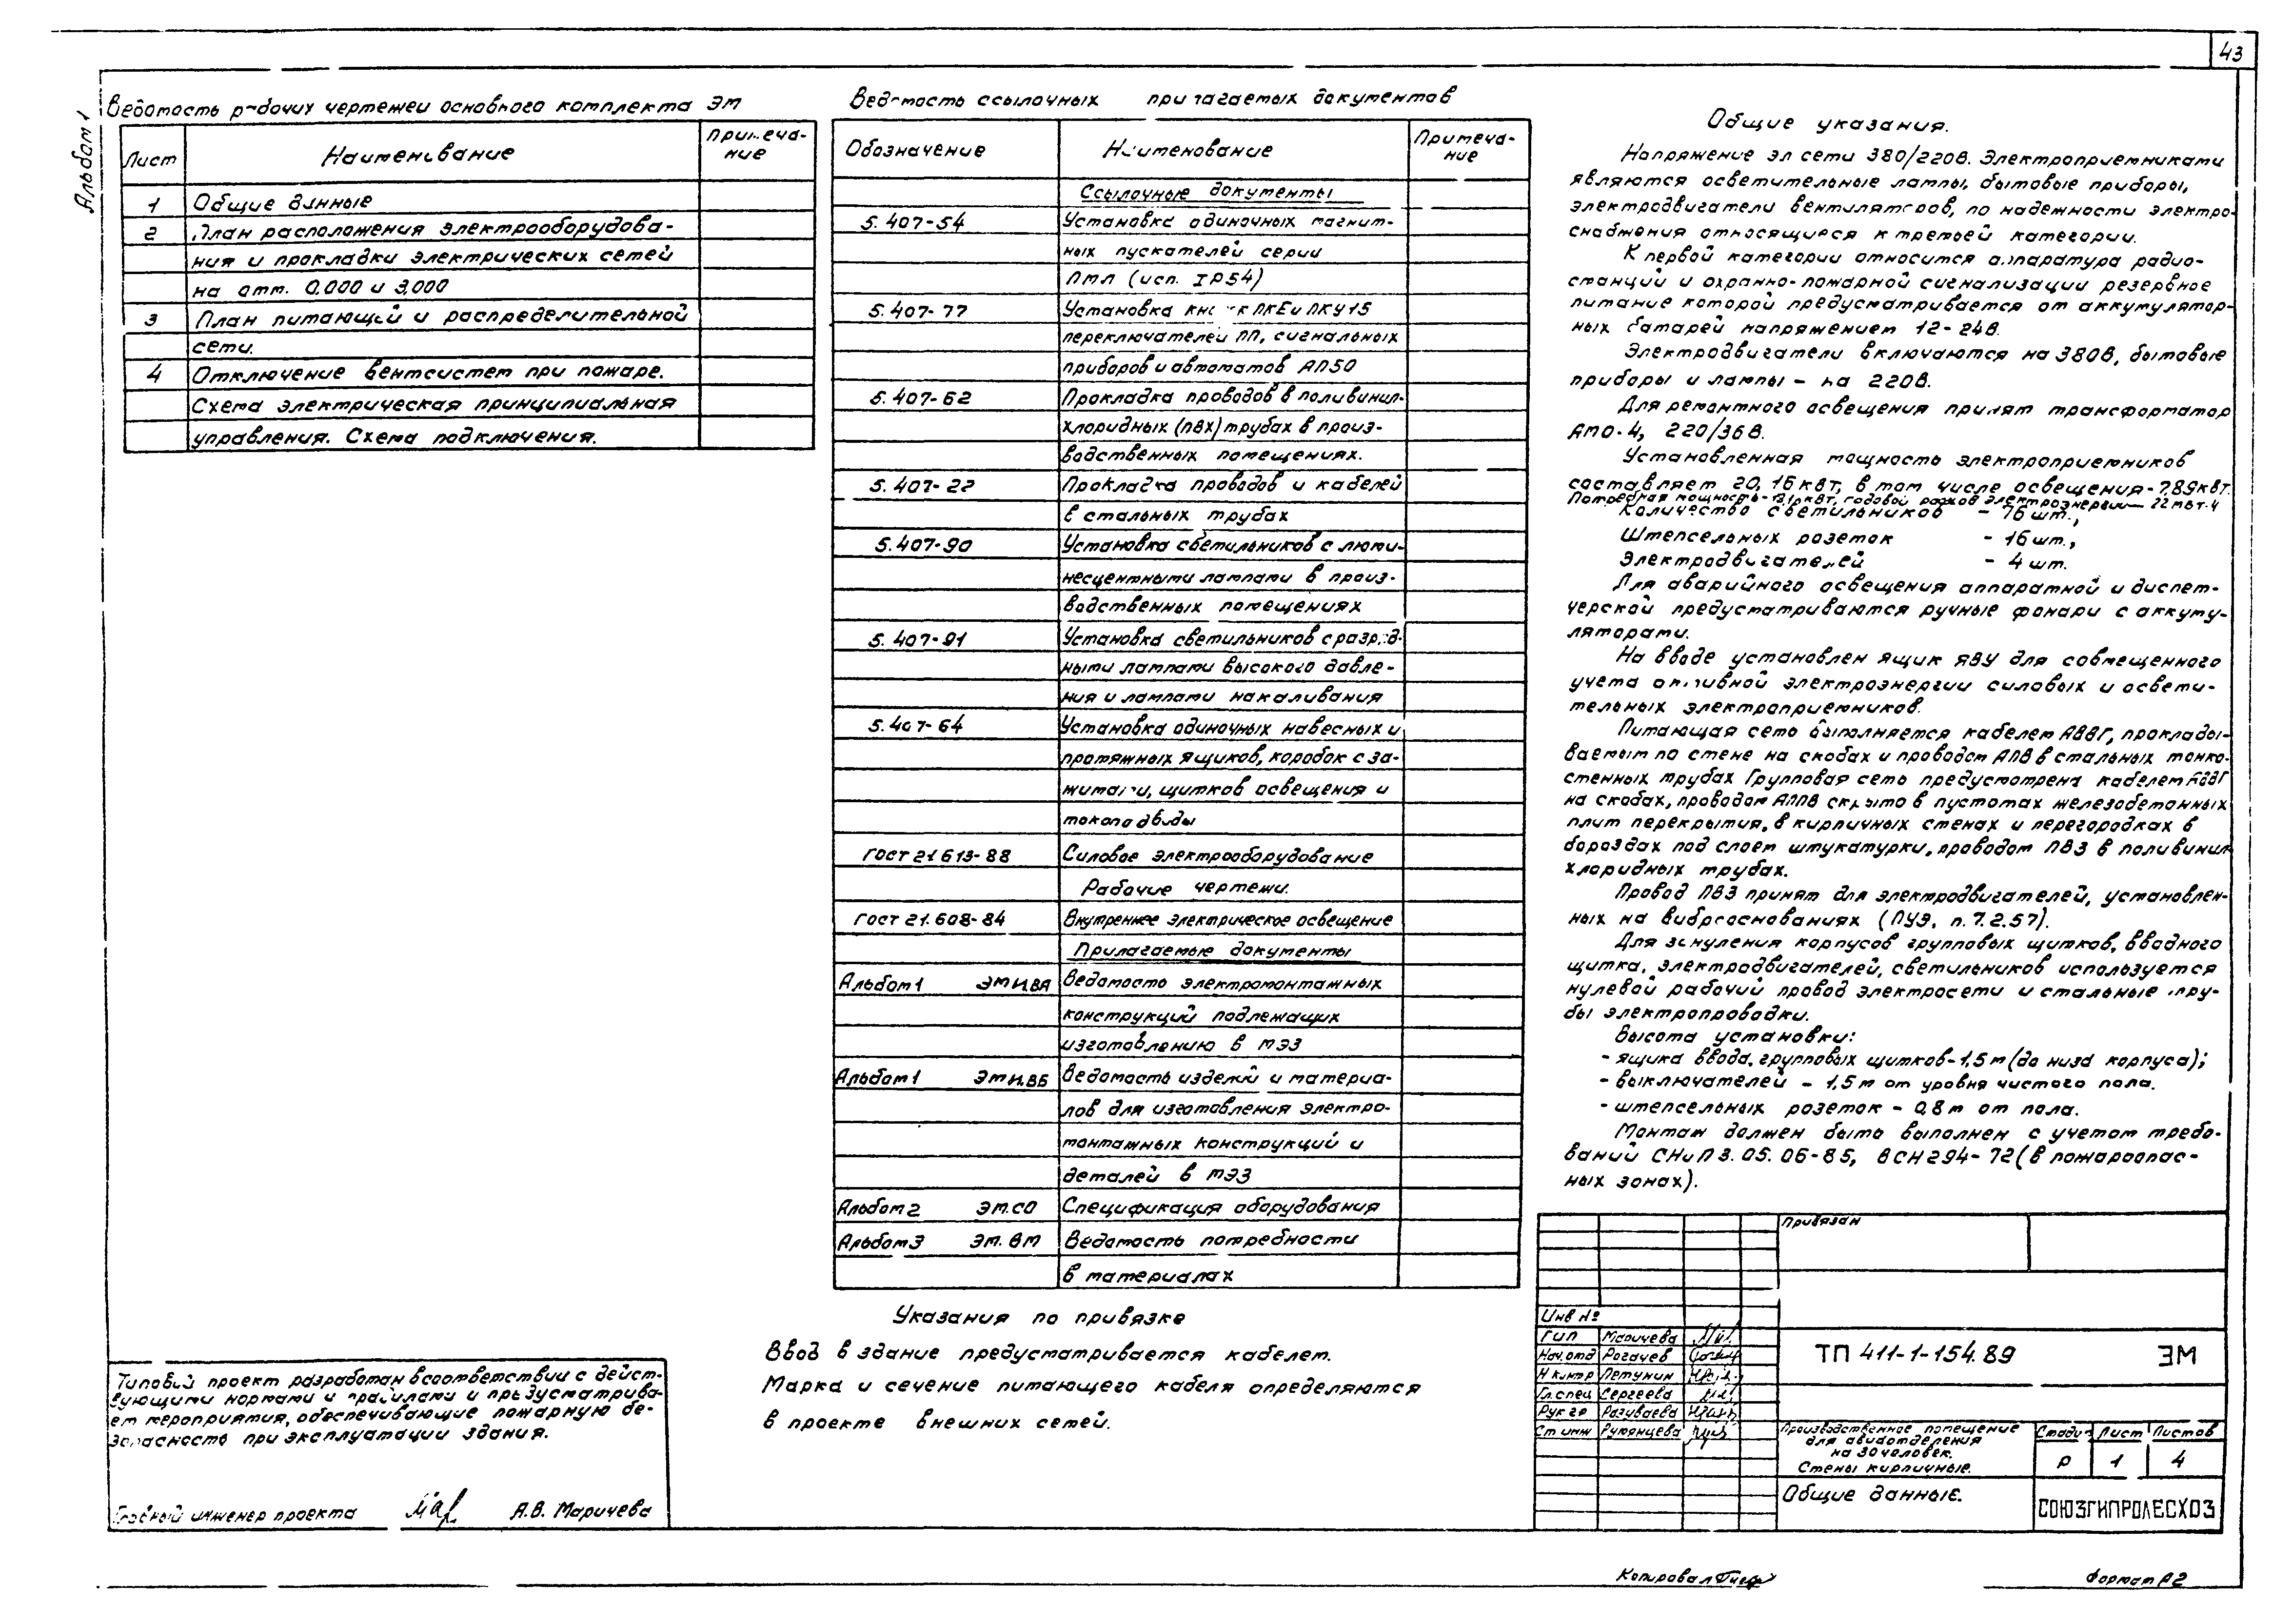 43
Альбом 1
Ведомость рабочих чертежей основного комплекта ЭМ
Лист Наименование Примеча-
ние
1 Общие данные
2 План расположения электрооборудова-
ния и прокладки электрических сетей
на отм. 0.000 и 3.000
3 План питающей и распределительной
сети.
4 Отключение вентсистем при пожаре.
Схема электрическая принципиальная
управления. Схема подключения.
Ведомость ссылочных прилагаемых документов
Обозначение Наименование Примеча-
ние
Ссылочные документы
5.407-54 Установка одиночных магнит-
ных пускателей серии
ПМЛ (исп. IP54)
5.407-77 Установка ПКЕ и ПКУ15
переключателей ПП, сигнальных
приборов и автоматов АП50
5.407-62 Прокладка проводов в поливинил-
хлоридных (ПВХ) трубах в произ-
водственных помещениях.
5.407-22 Прокладка проводов и кабелей
в стальных трубах
5.407-90 Установка светильников с люми-
несцентными лампами в произ-
водственных помещениях
5.407-91 Установка светильников с разряд-
ными лампами высокого давле-
ния и лампами накаливания
5.407-64 Установка одиночных навесных и
протяжных ящиков, коробок с за-
жимами, щитков освещения и
токоподводы
ГОСТ 21.613-88 Силовое электрооборудование
Рабочие чертежи.
ГОСТ 21.608-84 Внутреннее электрическое освещение
Прилагаемые документы
Альбом 1 ЭМИ.ВА Ведомость электромонтажных
конструкций подлежащих
изготовлению в МЭЗ
Альбом 1 ЭМИ.ВБ Ведомость изделий и материа-
лов для изготовления электро-
монтажных конструкций и
деталей в МЭЗ
Альбом 2 ЭМ.СО Спецификация оборудования
Альбом 3 ЭМ.ВМ Ведомость потребности
в материалах
Указания по привязке
Ввод в здание предусматривается кабелем.
Марка и сечение питающего кабеля определяются
в проекте внешних сетей.
Типовой проект разработан в соответствии с дейст-
вующими нормами и правилами и предусматрива-
ет мероприятия, обеспечивающие пожарную бе-
зопасность при эксплуатации здания.
Главный инженер проекта А.В. Маричева
Общие указания.
Напряжение эл сети 380/220В. Электроприемниками
являются осветительные лампы, бытовые приборы,
электродвигатели вентиляторов, по надежности электро-
снабжения относящиеся к третьей категории.
К первой категории относится аппаратура радио-
станций и охранно-пожарной сигнализации резервное
питание которой предусматривается от аккумулятор-
ных батарей напряжением 12-24В.
Электродвигатели включаются на 380В, бытовые
приборы и лампы - на 220В.
Для ремонтного освещения принят трансформатор
АМО-4, 220/36В.
Установленная мощность электроприемников
составляет 20,16 кВт, в том числе освещения - 7.89 кВт.
Потребная мощность годовой расход электроэнергии — 22 мвт.ч
Количество светильников - 76 шт.,
Штепсельных розеток - 16 шт.,
Электродвигателей - 4 шт.
Для аварийного освещения аппаратной и диспет-
черской предусматриваются ручные фонари с аккуму-
ляторами.
На вводе установлен ящик ЯВУ для совмещенного
учета активной электроэнергии силовых и освети-
тельных электроприемников.
Питающая сеть выполняется кабелем АВВГ, проклады-
ваемым по стене на скобах и проводом АПВ в стальных тонко-
стенных трубах Групповая сеть предусмотрена кабелем АВВГ
на скобах, проводом АППВ скрыто в пустотах железобетонных
плит перекрытия, в кирпичных стенах и перегородках в
бороздах под слоем штукатурки, проводом ПВ3 в поливинил-
хлоридных трубах.
Провод ПВ3 принят для электродвигателей, установлен-
ных на виброоснованиях (ПУЭ, п.7.2.57).
Для зануления корпусов групповых щитков, вводного
щитка, электродвигателей, светильников используется
нулевой рабочий провод электросети и стальные тру-
бы электропроводки.
Высота установки:
- ящика ввода, групповых щитков - 1,5 м (до низа корпуса);
- выключателей - 1,5 м от уровня чистого пола.
- штепсельных розеток - 0,8 м от пола.
Монтаж должен быть выполнен с учетом требо-
ваний СНиП 3.05.06-85, ВСН 294-72 (в пожароопас-
ных зонах).
Привязан
Инв №
ГИП Маричева
Нач.отд Рогачев
Н контр Петунин
Гл.спец Сергеева
Рук гр Разуваева
Ст инж Румянцева
ТП 411-1-154.89 ЭМ
Производственное помещение
для авиаотделения
на 30 человек.
Стены кирпичные.
Стадия Лист Листов
Р 1 4
Общие данные.
СОЮЗГИПРОЛЕСХОЗ
Копировал
Формат А2